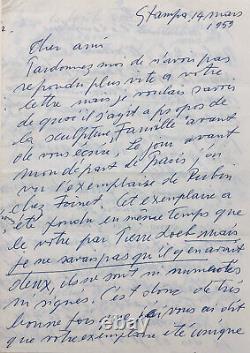 Stampa 14 mars
1959
2.
Cher ami
Pardonnez moi de n'avoir pas
repondu plus vite a votre
lettre mais je voulais savoir
de quoi il s'agit a propos de
la sculpture Famille avant
de vous ecrire. Le jour avant
mon départ de Paris j'ai
vu l'exemplaire de Rubin
chez Foinet. Cet exemplaire a
été fondu en même temps que
le votre par Pierre Loeb mais
je ne savais pas qu'il y en avait
deux, ils ne sont ni numerotés
ni signés. C'est donc de très
bonne foi que j'ai vous ai dit
que votre exemplaire été unique